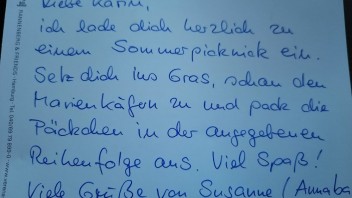 Liebe Karin,
ich lade dich herzlich zu
einem Sommerpicknick ein.
Setz dich ins Gras, schau den
Marienkäfern zu und pack die
Päckchen in der angegebenen
Reihenfolge aus. Viel Spaß!
Viele Grüße von Susanne (Annaba